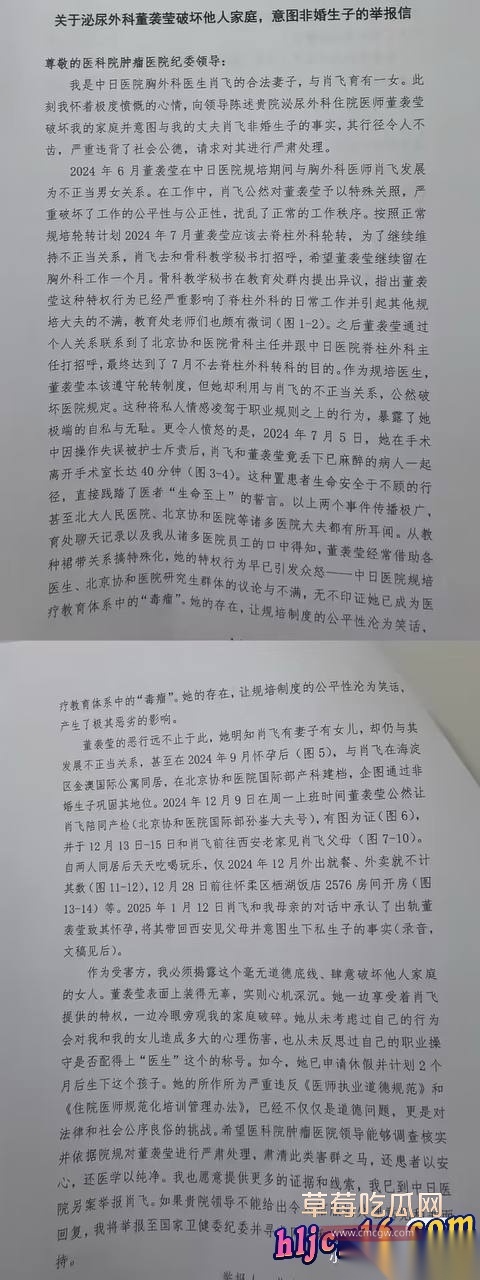 关于泌尿外科董袭莹破坏他人家庭，意图非婚生子的举报信
尊敬的医科院肿瘤医院纪委领导：
我是中日医院胸外科医生肖飞的合法妻子，与肖飞育有一女。此
刻我怀着极度愤慨的心情，向领导陈述贵院泌尿外科住院医师董袭莹
破坏我的家庭并意图与我的丈夫肖飞非婚生子的事实，其行径令人不
齿，严重违背了社会公德，请求对其进行严肃处理。
2024 年 6 月董袭莹在中日医院规培期间与胸外科医师肖飞发展
为不正当男女关系。在工作中，肖飞公然对董袭莹予以特殊关照，严
重破坏了工作的公平性与公正性，扰乱了正常的工作秩序。按照正常
规培轮转计划 2024 年 7 月董袭莹应该去脊柱外科轮转，为了继续维
持不正当关系，肖飞去和骨科教学秘书打招呼，希望董袭莹继续留在
胸外科工作一个月。骨科教学秘书在教育处群内提出异议，指出董袭
莹这种特权行为已经严重影响了脊柱外科的日常工作并引起其他规
培大夫的不满，教育处老师们也颇有微词（图 1-2）。之后董袭莹通过
个人关系联系到了北京协和医院骨科主任并跟中日医院脊柱外科主
任打招呼，最终达到了 7 月不去脊柱外科转科的目的。作为规培医生，
董袭莹本该遵守轮转制度，但她却利用与肖飞的不正当关系，公然破
坏医院规定。这种将私人情感凌驾于职业规则之上的行为，暴露了她
极端的自私与无耻。更令人愤怒的是，2024 年 7 月 5 日，她在手术
中因操作失误被护士斥责后，肖飞和董袭莹竟丢下已麻醉的病人一起
离开手术室长达 40 分钟（图 3-4）。这种置患者生命安全于不顾的行
径，直接践踏了医者“生命至上”的誓言。以上两个事件传播极广，
甚至北大人民医院、北京协和医院等诸多医院大夫都有所耳闻。从教
育处聊天记录以及我从诸多医院员工的口中得知，董袭莹经常借助各
种裙带关系搞特殊化，她的特权行为早已引发众怒——中日医院规培
医生、北京协和医院研究生群体的议论与不满，无不印证她已成为医
疗教育体系中的“毒瘤”。她的存在，让规培制度的公平性沦为笑话，
疗教育体系中的“毒瘤”。她的存在，让规培制度的公平性沦为笑话，
产生了极其恶劣的影响。
董袭莹的恶行远不止于此，她明知肖飞有妻子有女儿，却仍与其
发展不正当关系，甚至在 2024 年 9 月怀孕后（图 5），与肖飞在海淀
区金澳国际公寓同居，在北京协和医院国际部产科建档，企图通过非
婚生子巩固其地位。2024 年 12 月 9 日在周一上班时间董袭莹公然让
肖飞陪同产检（北京协和医院国际部孙崟大夫号），有图为证（图 6），
并于 12 月 13 日-15 日和肖飞前往西安老家见肖飞父母（图 7-10）。
自两人同居后天天吃喝玩乐，仅 2024 年 12 月外出就餐、外卖就不计
其数（图 11-12），12 月 28 日前往怀柔区栖湖饭店 2576 房间开房（图
13-14）等。2025 年 1 月 12 日肖飞和我母亲的对话中承认了出轨董
袭莹致其怀孕，将其带回西安见父母并意图生下私生子的事实（录音，
文稿见后）。
作为受害方，我必须揭露这个毫无道德底线、肆意破坏他人家庭
的女人。董袭莹表面上装得无辜，实则心机深沉。她一边享受着肖飞
提供的特权，一边冷眼旁观我的家庭破碎。她从未考虑过自己的行为
会对我和我的女儿造成多大的心理伤害，也从未反思过自己的职业操
守是否配得上“医生”这个的称号。如今，她已申请休假并计划 2 个
月后生下这个孩子。她的所作所为严重违反《医师执业道德规范》和
《住院医师规范化培训管理办法》，已经不仅仅是道德问题，更是对
法律和社会公序良俗的挑战。希望医科院肿瘤医院领导能够调查核实
并依据院规对董袭莹进行严肃处理，肃清此类害群之马，还患者以安
心，还医学以纯净。我也愿意提供更多的证据和线索，我已到中日医
院另案举报肖飞。如果贵院领导不能给出令
回复，我将举报至国家卫健委纪委并寻
持。
举报人
草莓吃瓜网
www.cmcgw.com
hljc-16.com